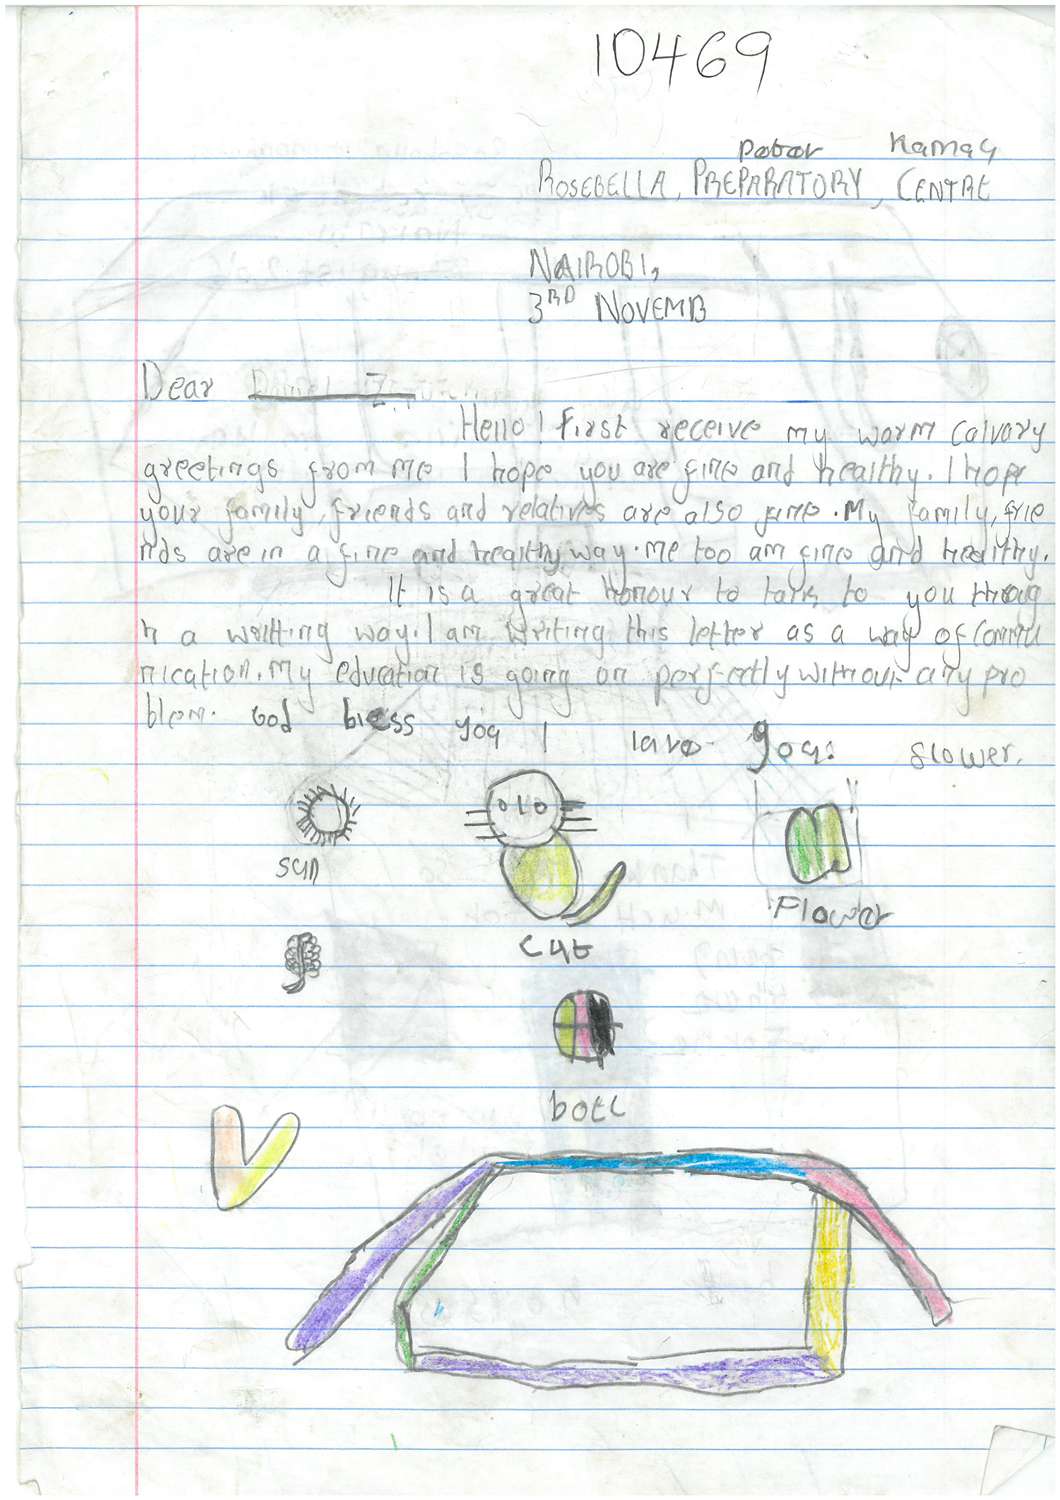 10469
Peter Kamau
ROSEBELLA, PREPARATORY, CENTRE
NAIROBI,
3RD NOVEMB
Dear
Hello! First receive my warm calvary
greetings from me I hope you are fine and healthy. I hope
your family, friends and relatives are also fine. My family, frie
nds are in a fine and healthy way. me too am fine and healthy.
It is a great honour to talk to you throug
h a writting way. I am writing this letter as a way of commu
nication. My education is going on perfectly without any pro
blem. God bless you I love you: flower.
sun
cat
Flower